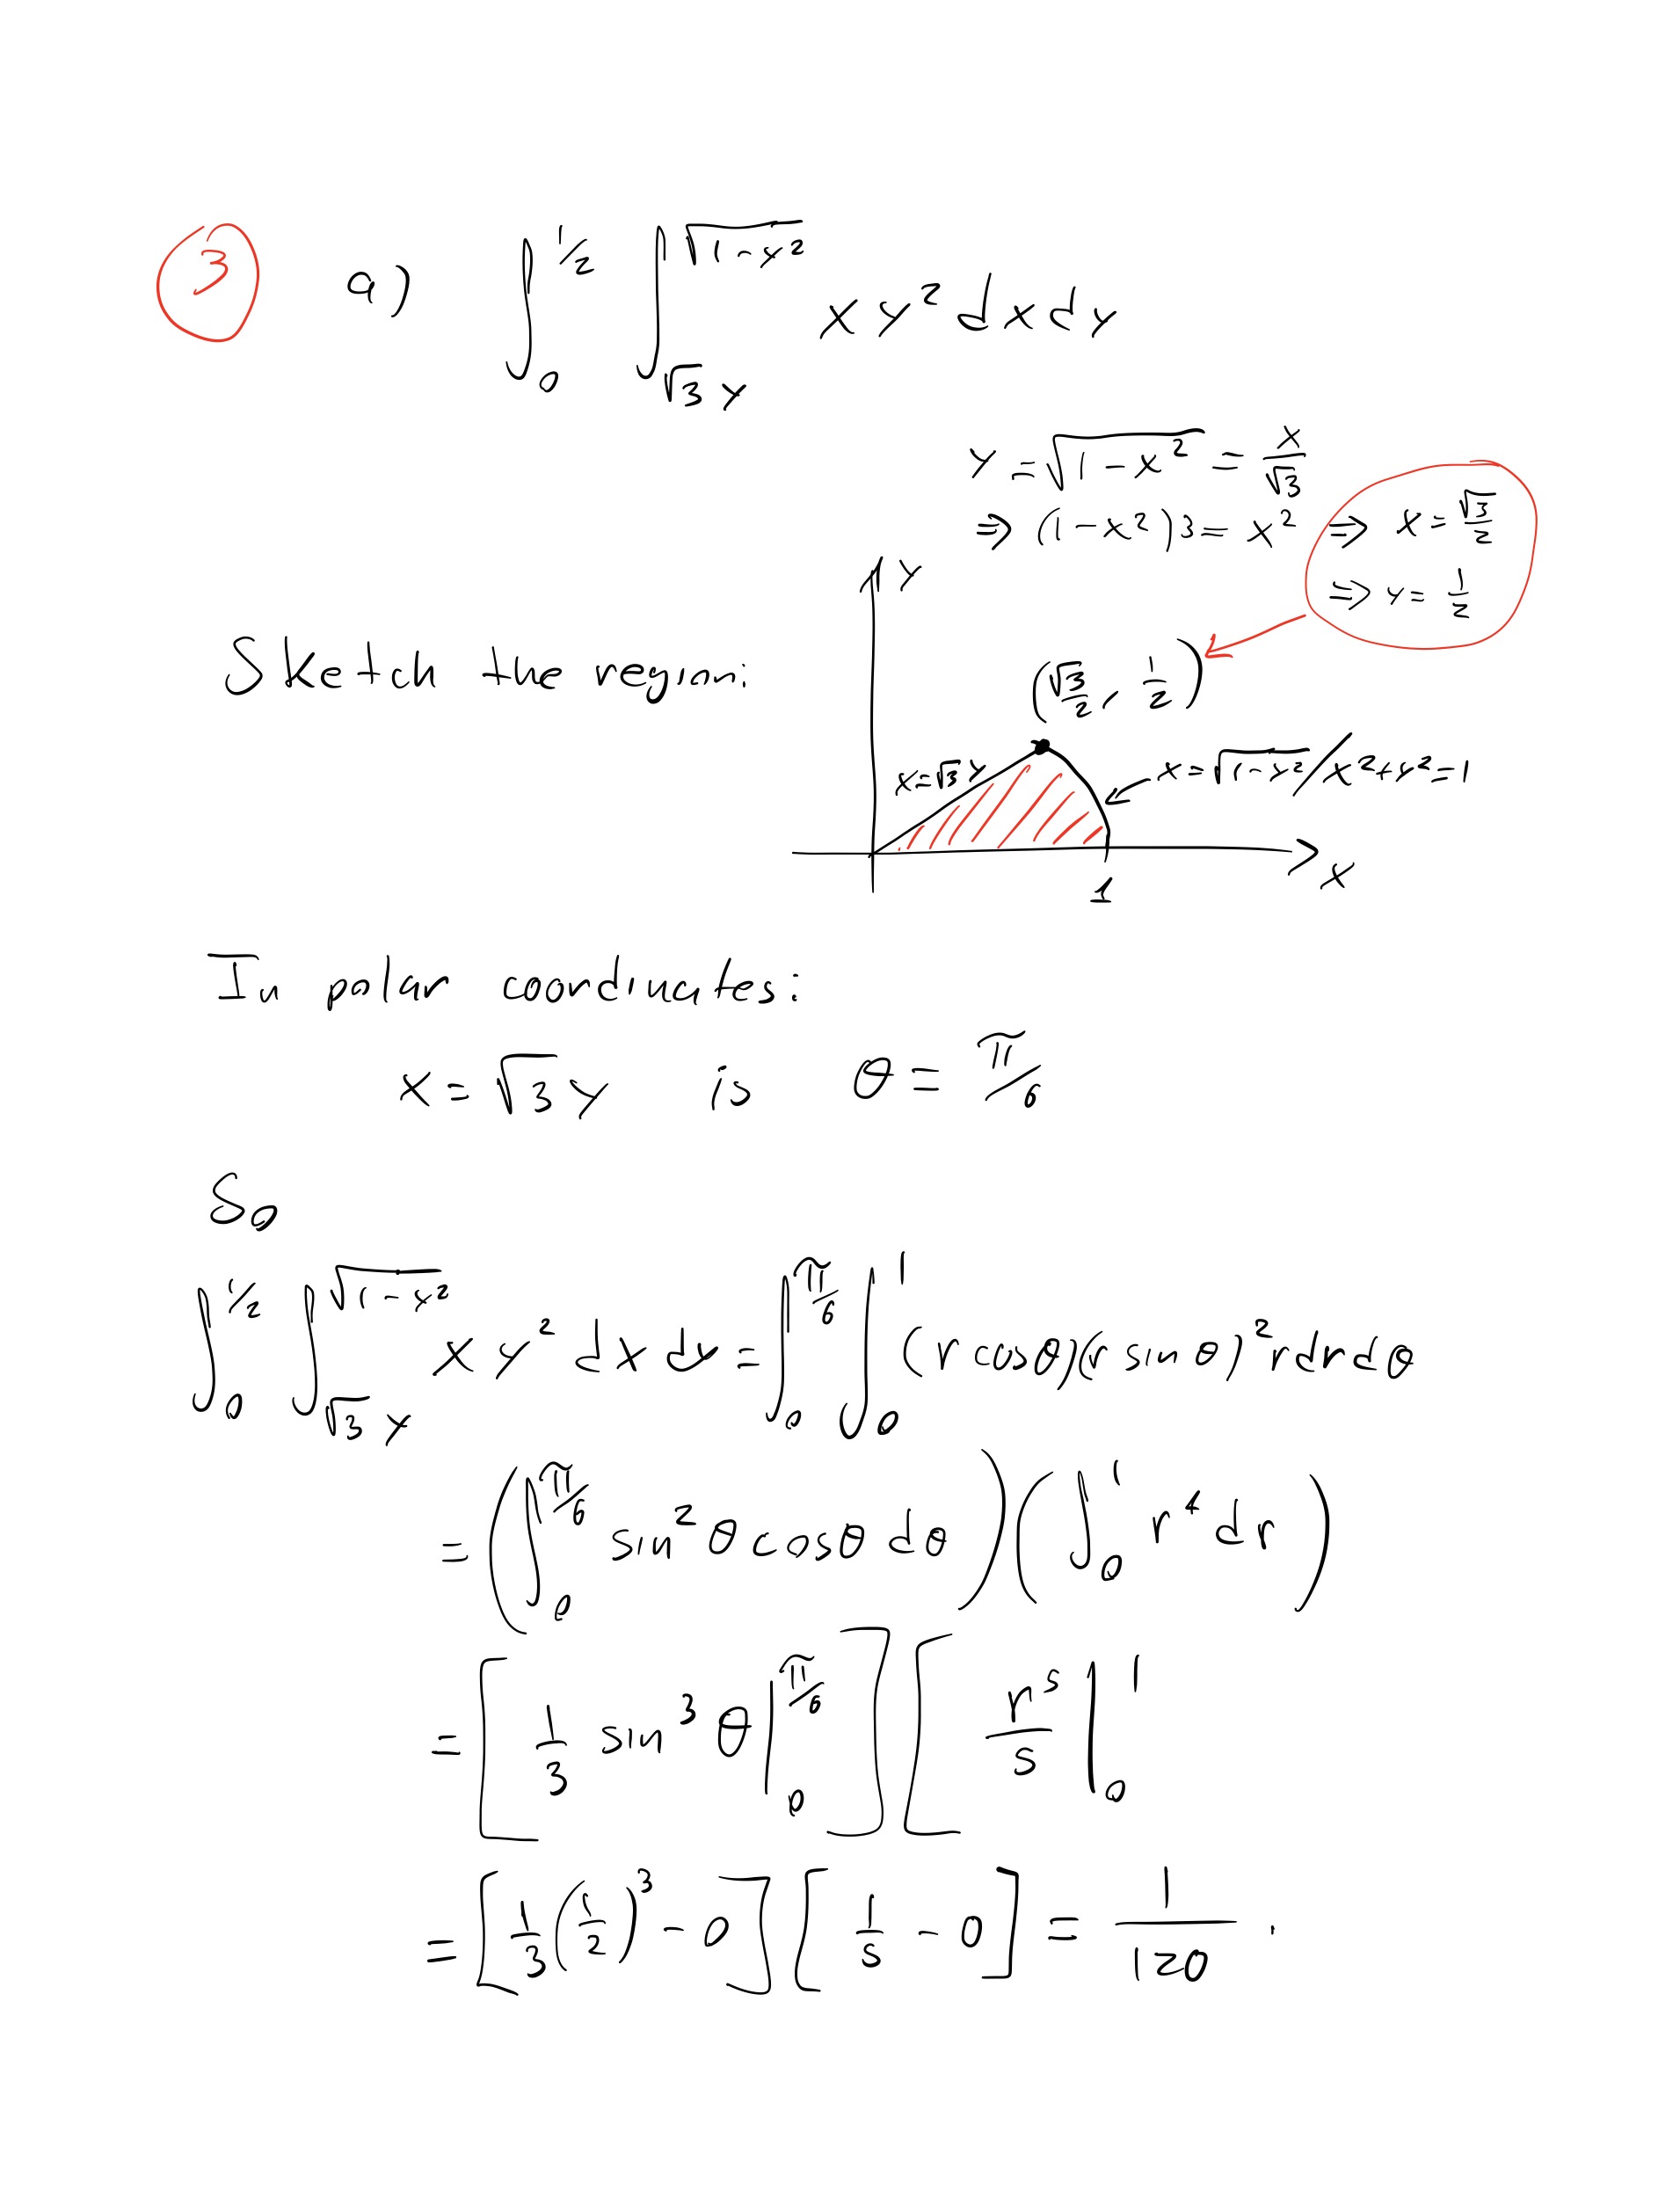 3 a) ∫_0^{1/2} ∫_{√3 y}^{√(1-y²)} x y² dx dy
y = √(1-x²) = x/√3
⇒ (1-x²)3 = x² ⇒ x = √3/2
⇒ y = 1/2
Sketch the region:
y
(√3/2, 1/2)
x=√3 y
x = √(1-y²) / x²+y²=1
1
x
In polar coordinates:
x = √3 y is θ = π/6
So
∫_0^{1/2} ∫_{√3 y}^{√(1-y²)} x y² dx dy = ∫_0^{π/6} ∫_0^1 (r cosθ)(r sin θ)² r dr dθ
= (∫_0^{π/6} sin²θ cosθ dθ) (∫_0^1 r⁴ dr)
= [1/3 sin³ θ |_0^{π/6}] [r⁵/5 |_0^1
= [1/3 (1/2)³ - 0] [1/5 - 0] = 1/120 .